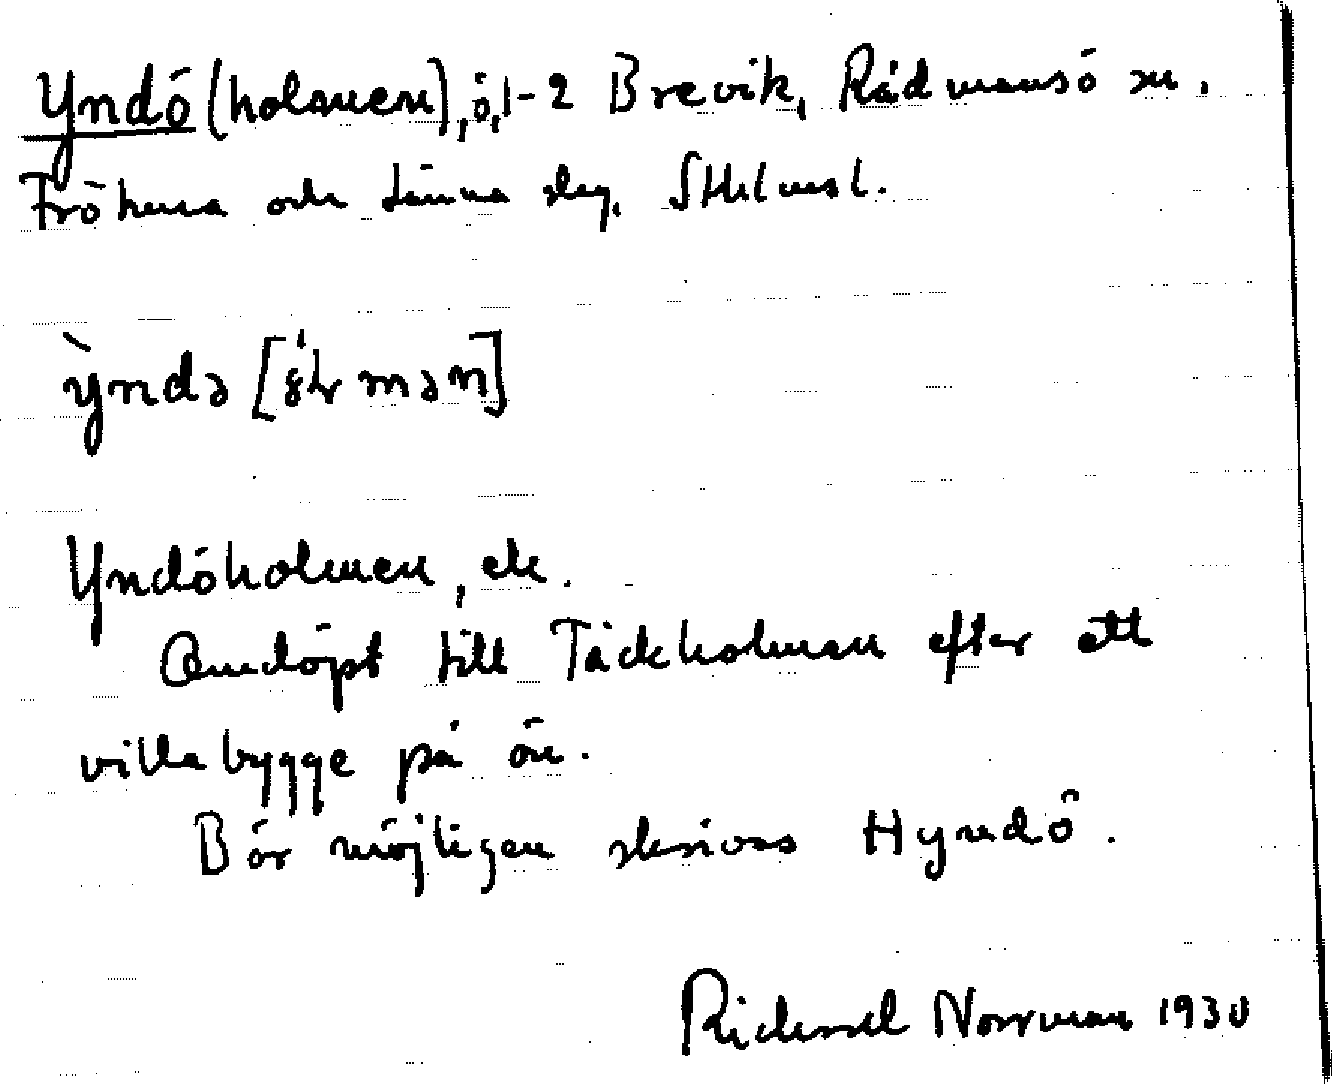 Yndö (holmen), ö, 1-2 Brevik, Rådmansö sn.
Frötuna och Länna slg, Sthlms l.
ỳndə [ mən]
Yndöholmen, ek.
Omdöpt till Täckholmen efter ett
villabygge på ön.
Bör möjligen skrivas Hyndö.
Norrman 1930